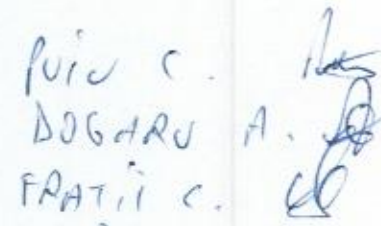 PUIU C.
DOGARU A.
FRATII C.